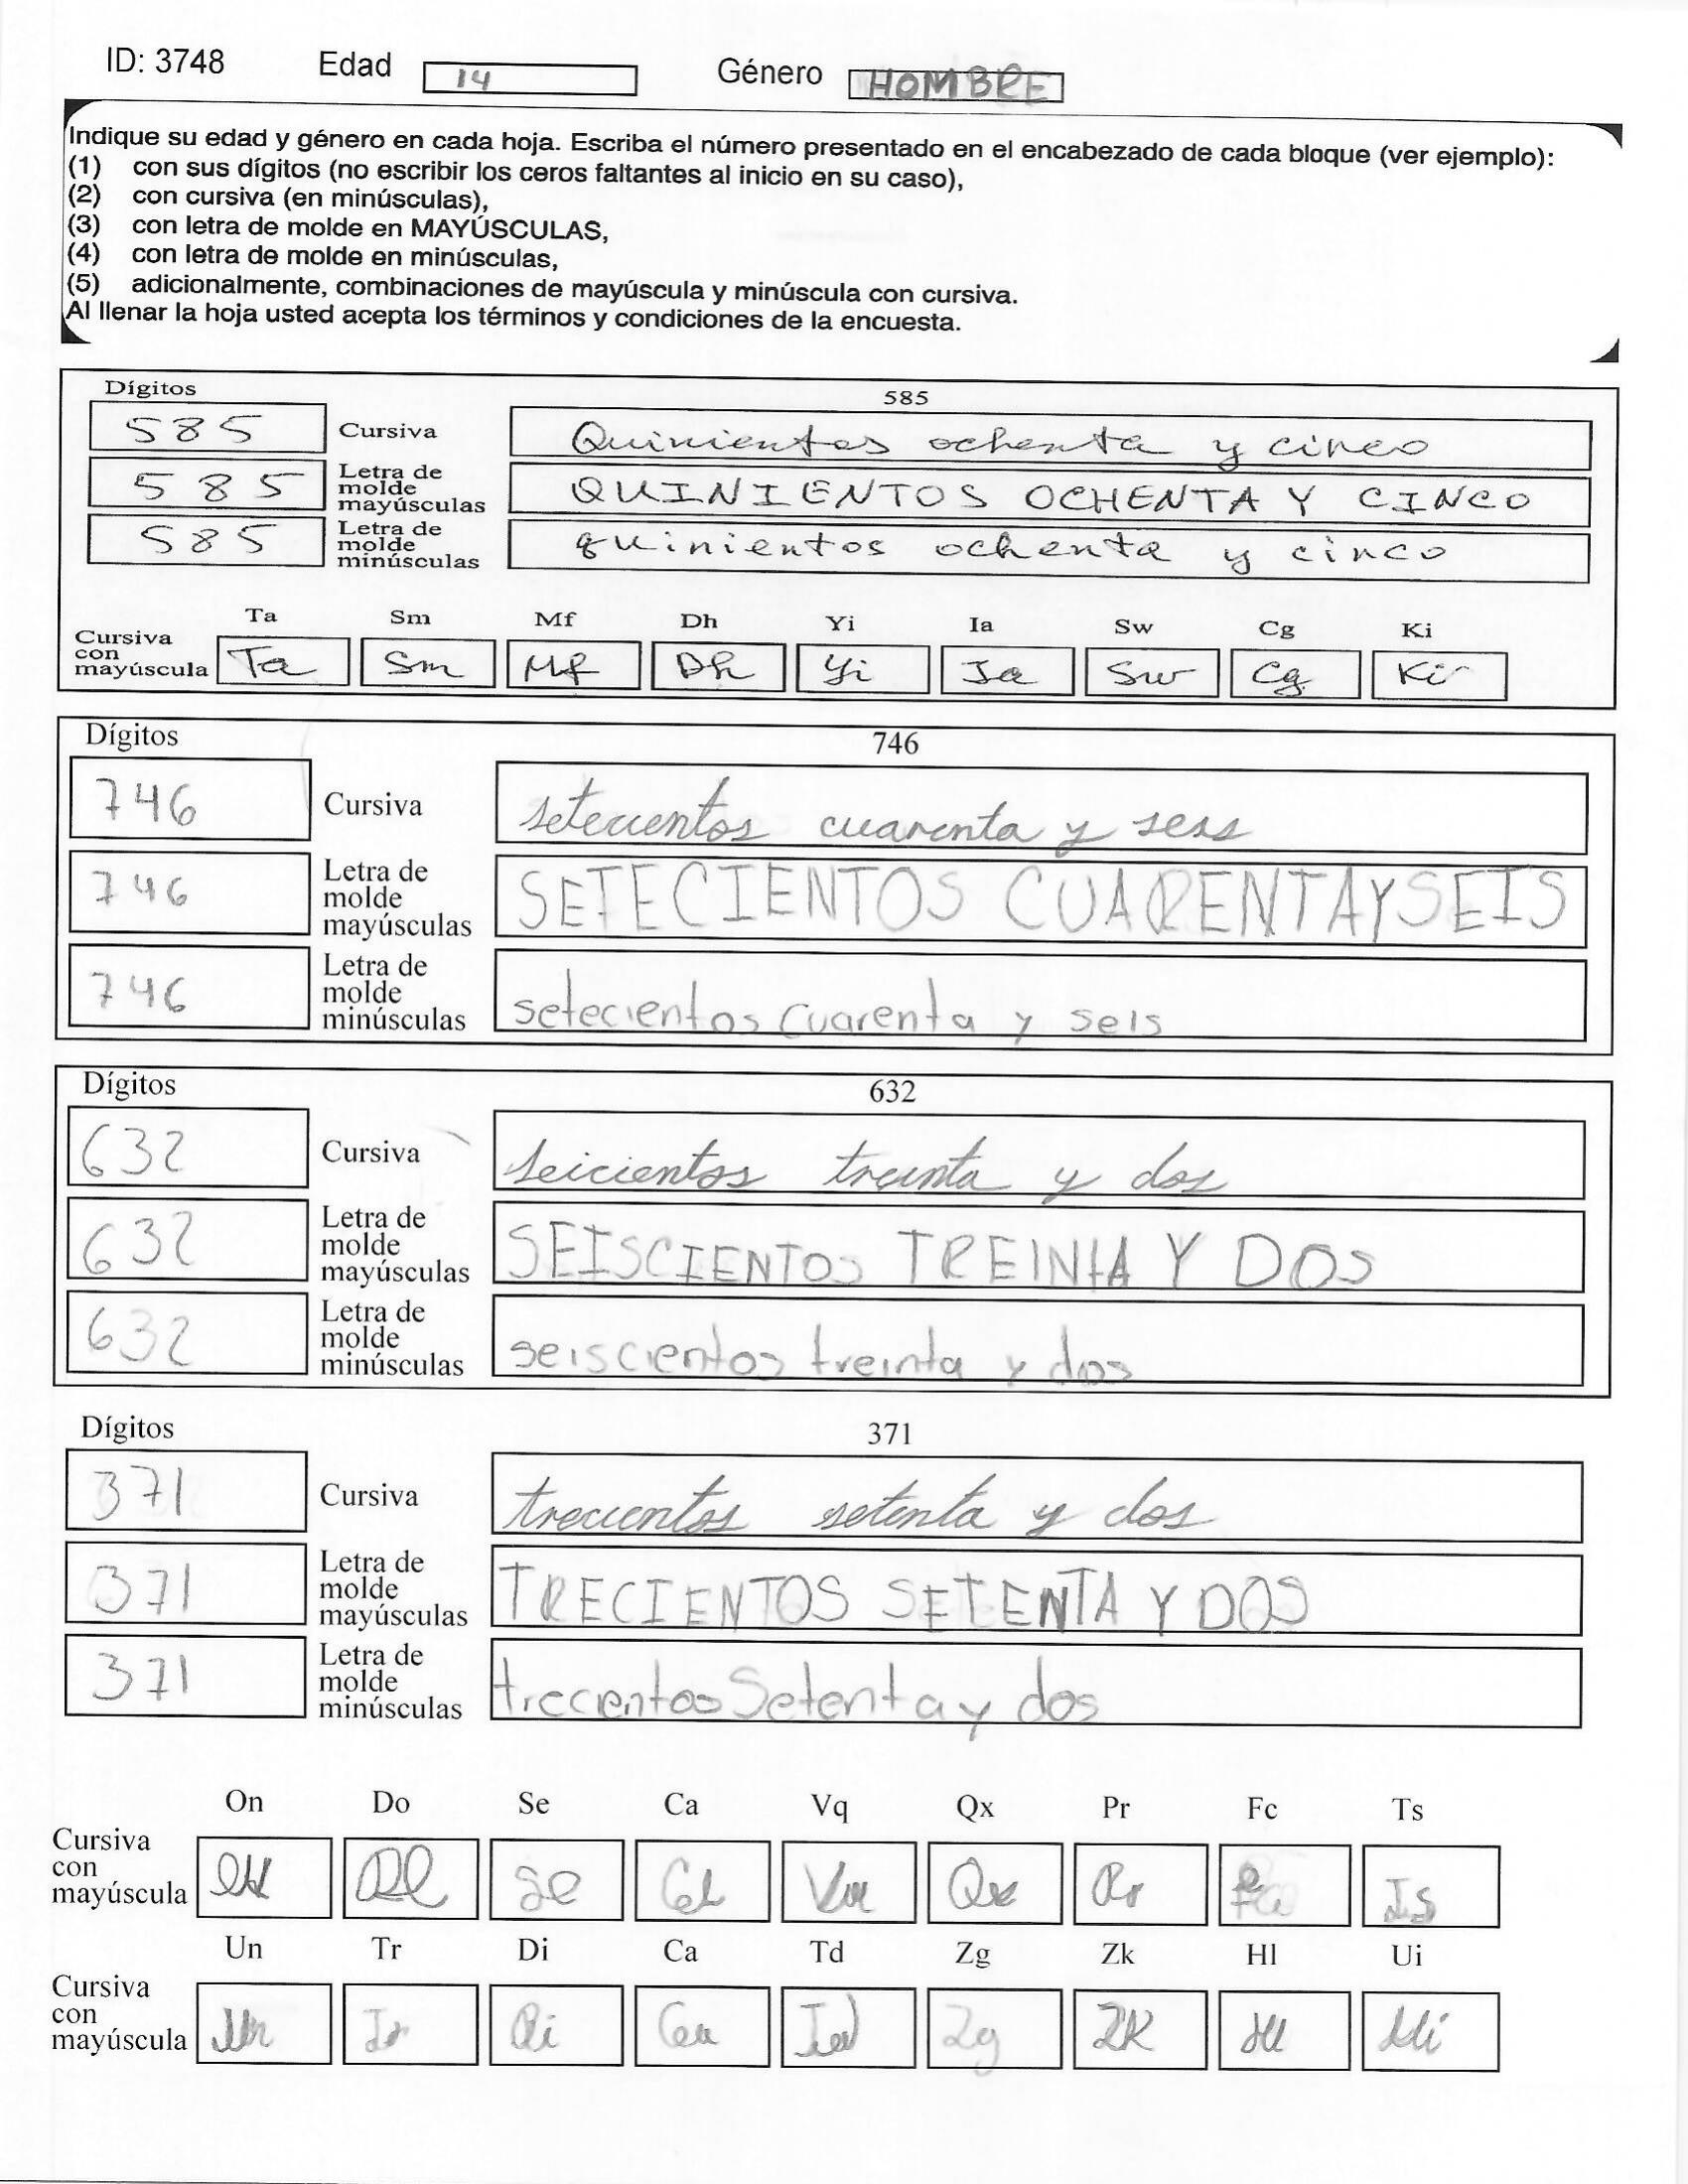 ID: 3748 Edad 14 Género HOMBRE
Indique su edad y género en cada hoja. Escriba el número presentado en el encabezado de cada bloque (ver ejemplo):
(1) con sus dígitos (no escribir los ceros faltantes al inicio en su caso),
(2) con cursiva (en minúsculas),
(3) con letra de molde en MAYÚSCULAS,
(4) con letra de molde en minúsculas,
(5) adicionalmente, combinaciones de mayúscula y minúscula con cursiva.
Al llenar la hoja usted acepta los términos y condiciones de la encuesta.
Dígitos 585
585 Cursiva Quinientos ochenta y cinco
585 Letra de molde mayúsculas QUINIENTOS OCHENTA Y CINCO
585 Letra de molde minúsculas quinientos ochenta y cinco
Ta Sm Mf Dh Yi Ia Sw Cg Ki
Cursiva con mayúscula Ta Sm Mf Dh Yi Ia Sw Cg Ki
Dígitos 746
746 Cursiva setecientos cuarenta y seis
746 Letra de molde mayúsculas SETECIENTOS CUARENTA Y SEIS
746 Letra de molde minúsculas setecientos cuarenta y seis
Dígitos 632
632 Cursiva seicientos treinta y dos
632 Letra de molde mayúsculas SEISCIENTOS TREINTA Y DOS
632 Letra de molde minúsculas seiscientos treinta y dos
Dígitos 371
371 Cursiva trecientos setenta y dos
371 Letra de molde mayúsculas TRECIENTOS SETENTA Y DOS
371 Letra de molde minúsculas trecientos Setenta y dos
On Do Se Ca Vq Qx Pr Fc Ts
Cursiva con mayúscula Se Qx Pr Ts
Un Tr Di Ca Td Zg Zk Hl Ui
Cursiva con mayúscula Un Tr Di Ca Td Zg ZK Hl Ui